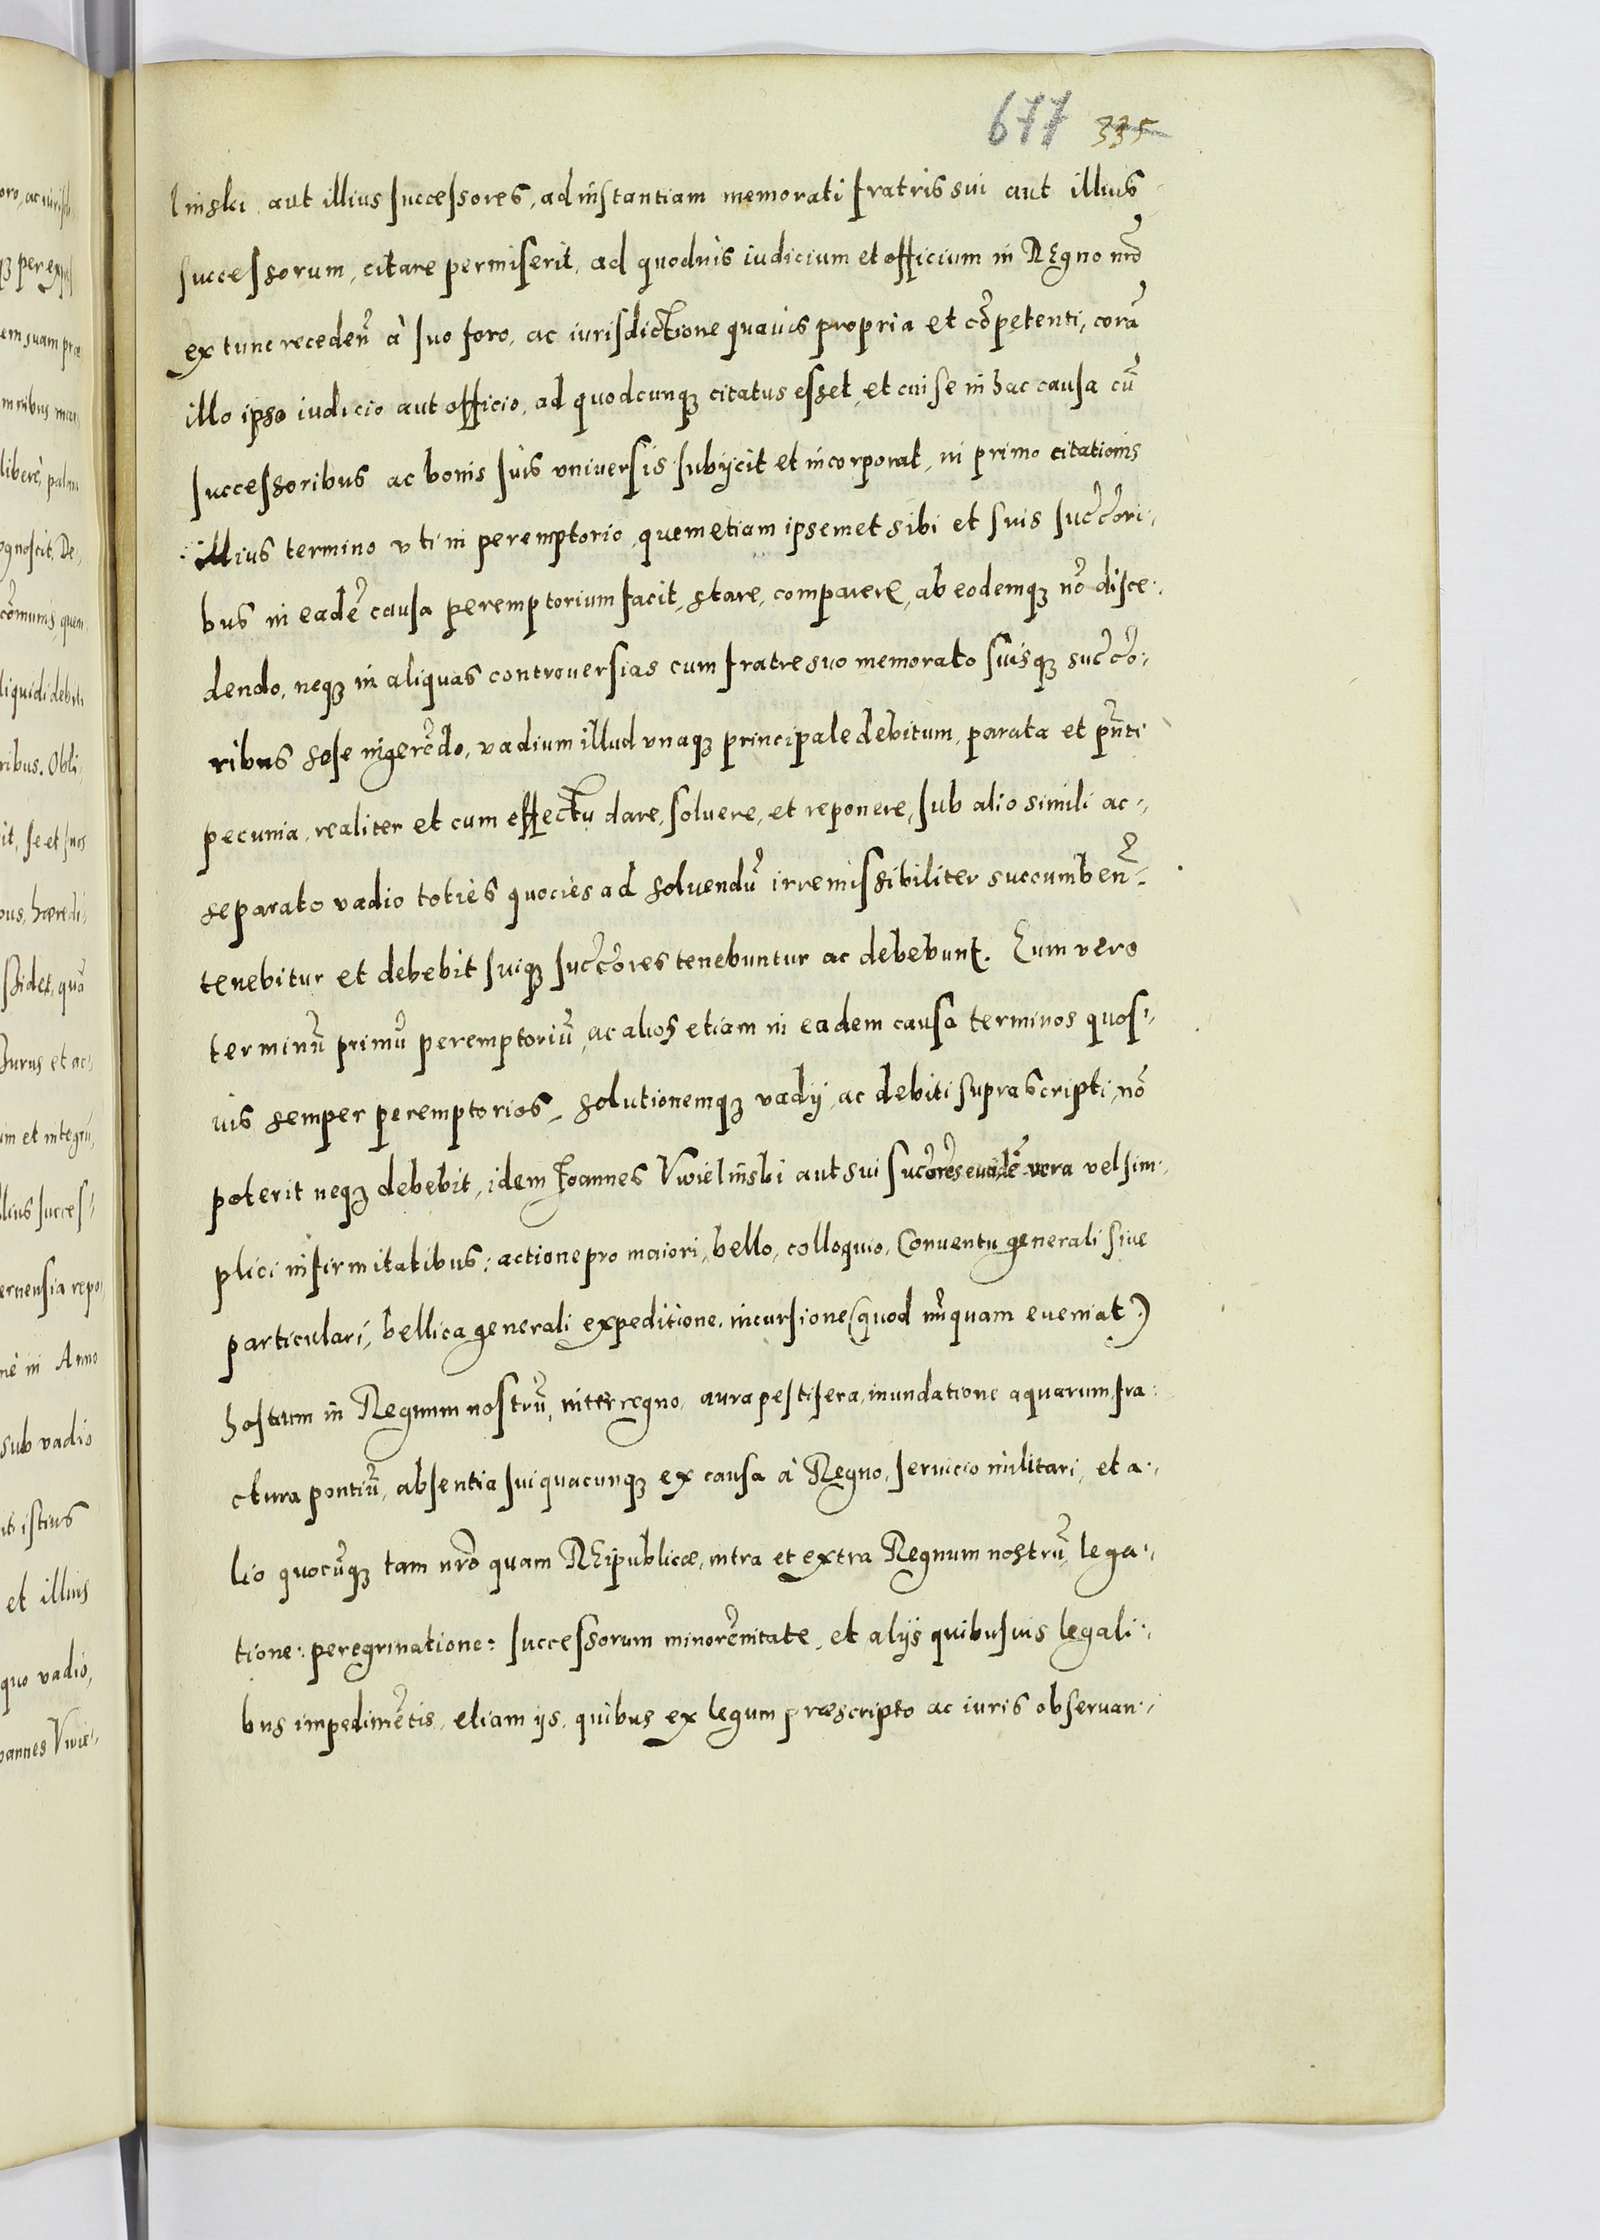 677 335
linski aut illius successores, ad instantiam memorati fratris sui aut illius
successorum, citare permiserit, ad quoduis iudicium et officium in REgno nr̃o
ex tunc recedeñ à suo foro, ac iurisdictione quauis propria et cõpetenti, corã
illo ipso iudicio aut officio, ad quodcunqȝ citatus esset, et cui se in hac causa cũ
successoribus ac bonis suis vniuersis subycit et incorporat, in primo citationis
illius termino vti in peremptorio, quem etiam ipsemet sibi et suis succ̃ori,
bus in eadẽ causa peremptorium facit, stare, comparere, ab eodemqȝ nõ disce,
dendo, neqȝ in aliquas controuersias cum fratre suo memorato suisqȝ succ̃o,
ribus sese ingerẽdo, vadium illud vnaqȝ principale debitum, parata et pñti
pecunia, realiter et cum effectu dare, soluere, et reponere, sub alio simili ac,
separato vadio toties quocies ad soluendũ irremissibiliter succumbeñ,
tenebitur et debebit suiqȝ succ̃ores tenebuntur ac debebunt. Eum vero
terminũ primũ peremptoriũ, ac alios etiam in eadem causa terminos quos,
uis semper peremptorios, solutionemqȝ vadÿ, ac debiti suprascripti, nõ
poterit neqȝ debebit, idem Joannes Vwielinski aut sui succ̃ores euadẽ vera vel sim,
plici infirmitatibus: actione pro maiori, bello, colloquio, Conuentu generali siue
particulari, bellica generali expeditione, incursione (quod nũquam eueniat)
hostium in Regnum nostrũ, interregno, aura pestifera, inundatione aquarum, fra,
ctura pontiũ, absentia sui quacunqȝ ex causa à Regno, seruicio militari, et a,
lio quocũqȝ tam nr̃o quam REipublicæ, intra et extra Regnum nostrũ, lega,
tione: peregrinatione: successorum minorẽnitate, et alÿs quibusuis legali,
bus impedimẽtis, etiam ÿs, quibus ex legum præscripto ac iuris obseruan,